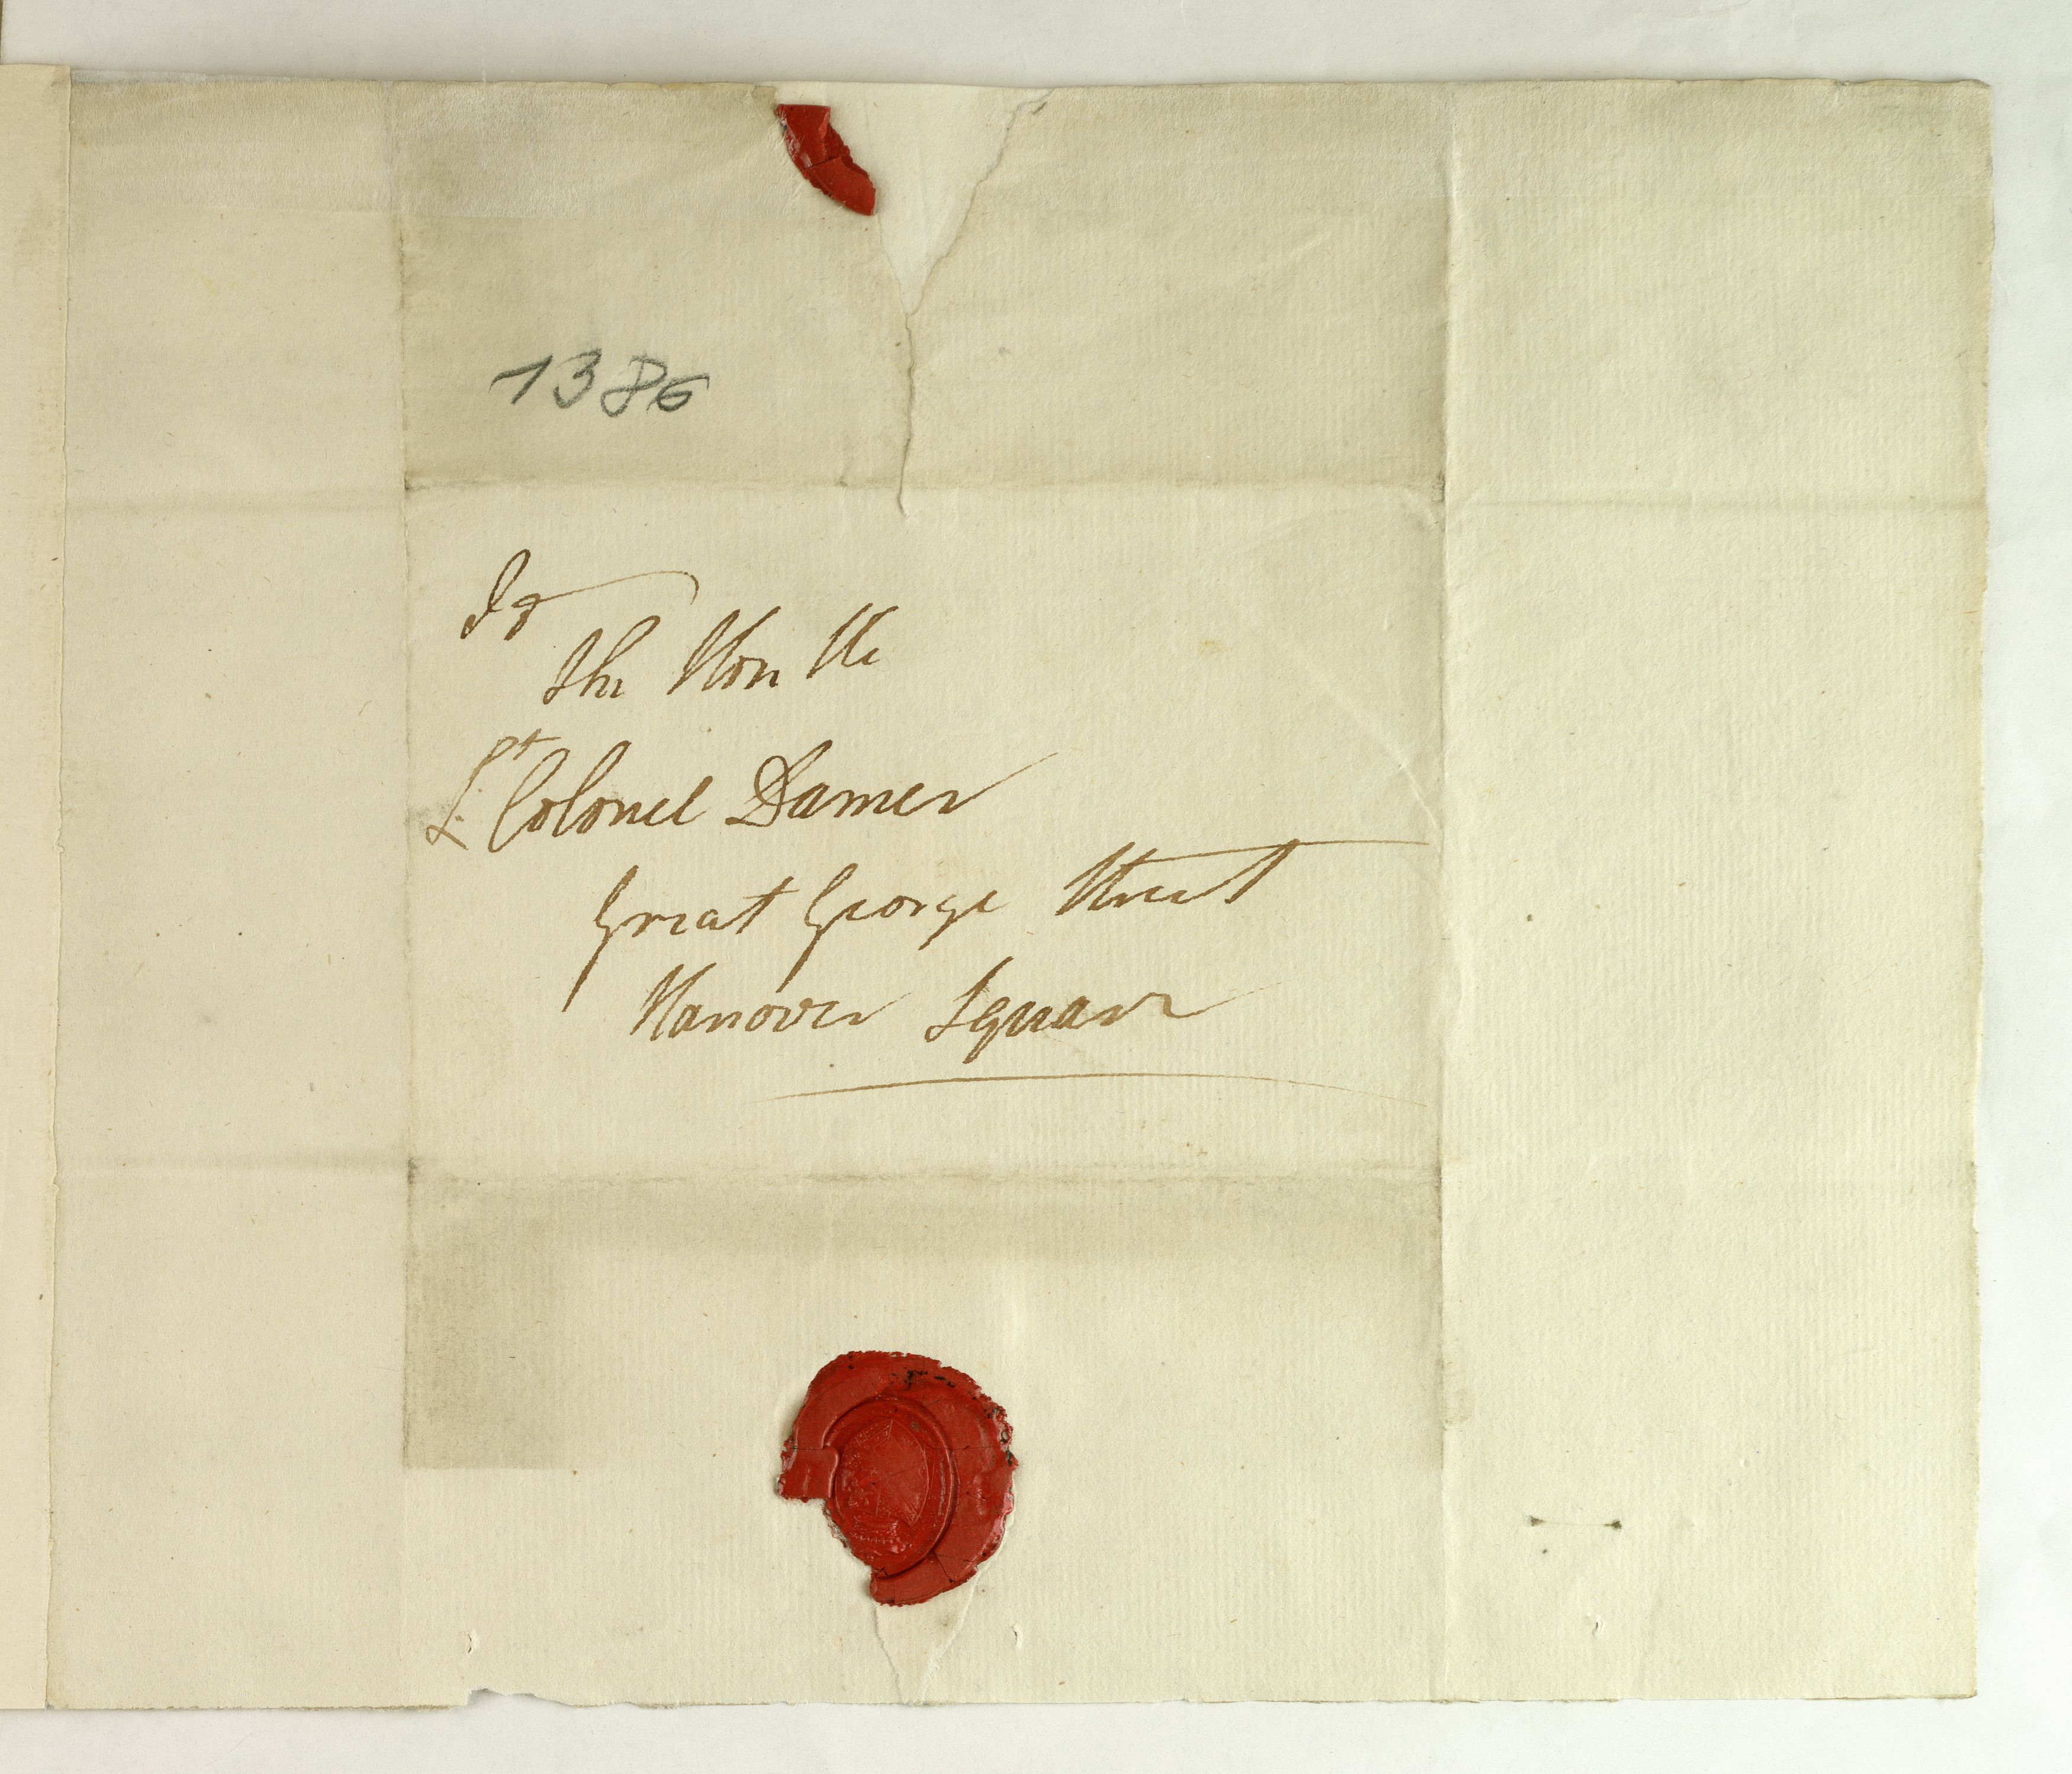 1386
To
the Hon ble
Lt Colonel Damer
Great George Street
Hanover Square